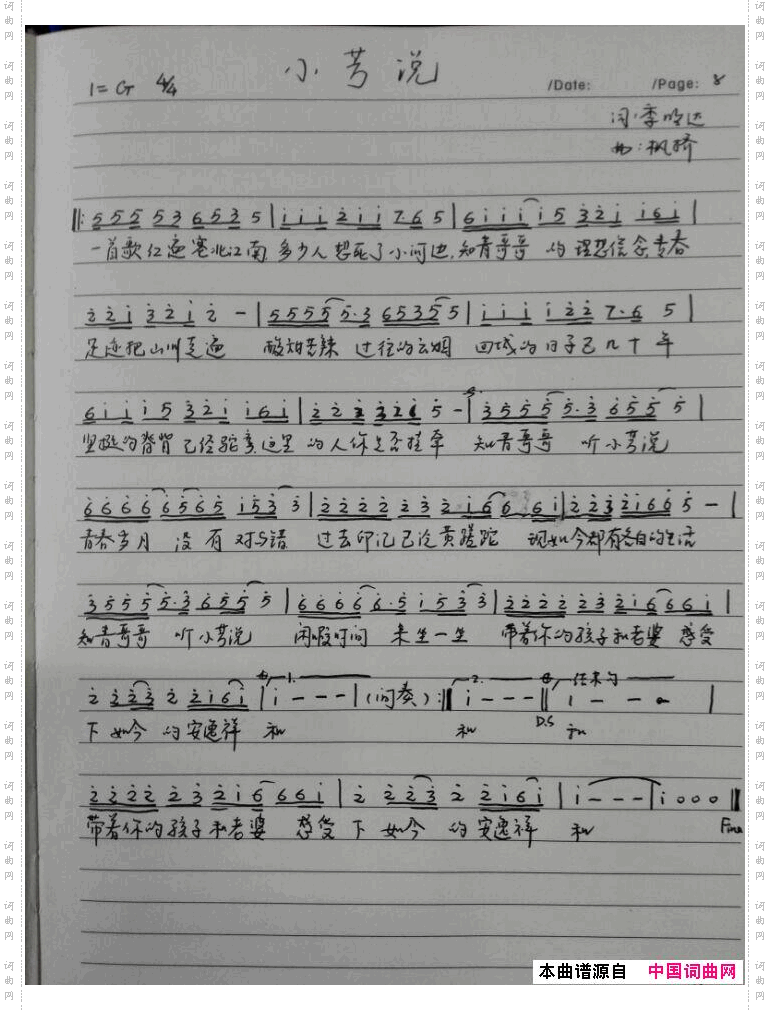 小芳说
1=G 4/4
/Date: /Page: 8
词:李
曲:枫桥
‖: 5 5 5 5 3 6 5 3 5 | i i i 2 i i 7 6 5 | 6 i i i i 5 3 2 i i 6 i |
一首歌红遍塞北江南,多少人想死了小河边,知青哥哥 的理想信念青春
2 2 i 3 2 i 2 - | 5 5 5 5 5·3 6 5 3 5 5 | i i i i 2 2 7·6 5 |
足迹把山川走遍 酸甜苦辣 过往的云烟 回城的日子已几十年
6 i i i 5 3 2 i i 6 i | 2 2 2 3 2 i 5 - | 3 5 5 5 5·3 6 5 5 5 |
坚挺的脊背已经驼 这里的人你是否挂牵 知青哥哥 听小芳说
6 6 6 6 6 5 6 5 i 5 3 3 | 2 2 2 2 2 3 2 i 6 6 6 i | 2 2 3 2 i 6 6 5 - |
青春岁月 没有对与错 过去印记已沧黄蹉跎 现如今都有各自的生活
3 5 5 5 5·3 6 5 5 5 | 6 6 6 6 6·5 i 5 3 3 | 2 2 2 2 2 3 2 i 6 6 6 i |
知青哥哥 听小芳说 闲暇时间 来坐一坐 带着你的孩子和老婆 感受
2 3 2 3 2 2 i 6 i | 1. i - - - | (间奏) :‖ 2. i - - - ‖ 结束句 i - - - |
下如今的安逸祥和 和 D.S 和
2 2 2 2 2 3 2 i 6 6 6 i | 2 2 2 3 2 2 i 6 i | i - - - | i 0 0 0 ‖
带着你的孩子和老婆 感受下如今的安逸祥和 Fine
本曲谱源自 中国词曲网